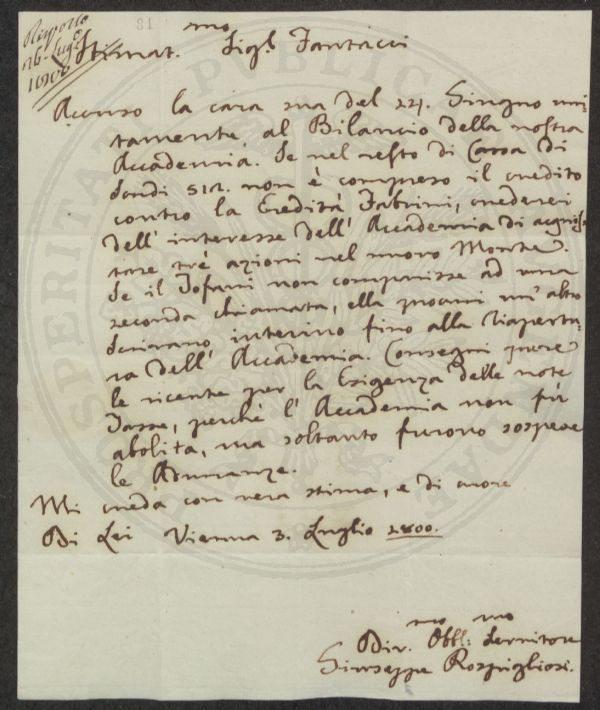 Risposto
16. Lug.o
1800
31
Stimat.mo Sig.r Fantacci
Accuso la cara sua del 24. Giugno uni-
tamente al Bilancio della nostra
Accademia. Se nel resto di Cassa di
Scudi 512. non è compreso il credito
contro la Eredità Fabrini, crederei
dell' interesse dell' Accademia di acquis-
tare trè azioni nel nuovo Monte.
Se il Tofani non comparisse ad una
seconda chiamata, ella procuri un' altro
interino fino alla riapertu-
ra dell' Accademia. Consegni pure
le ricente per la Esigenza delle note
Tasse, perchè l' Accademia non fù
abolita, ma soltanto furono sospese
le Adunanze.
Mi creda con vera stima, e di cuore
Di Lei Vienna 3. Luglio 1800.
Div.mo Obbl:mo Servitore
Giuseppe Rospigliosi.
PROSPERITATI PUBLICAE